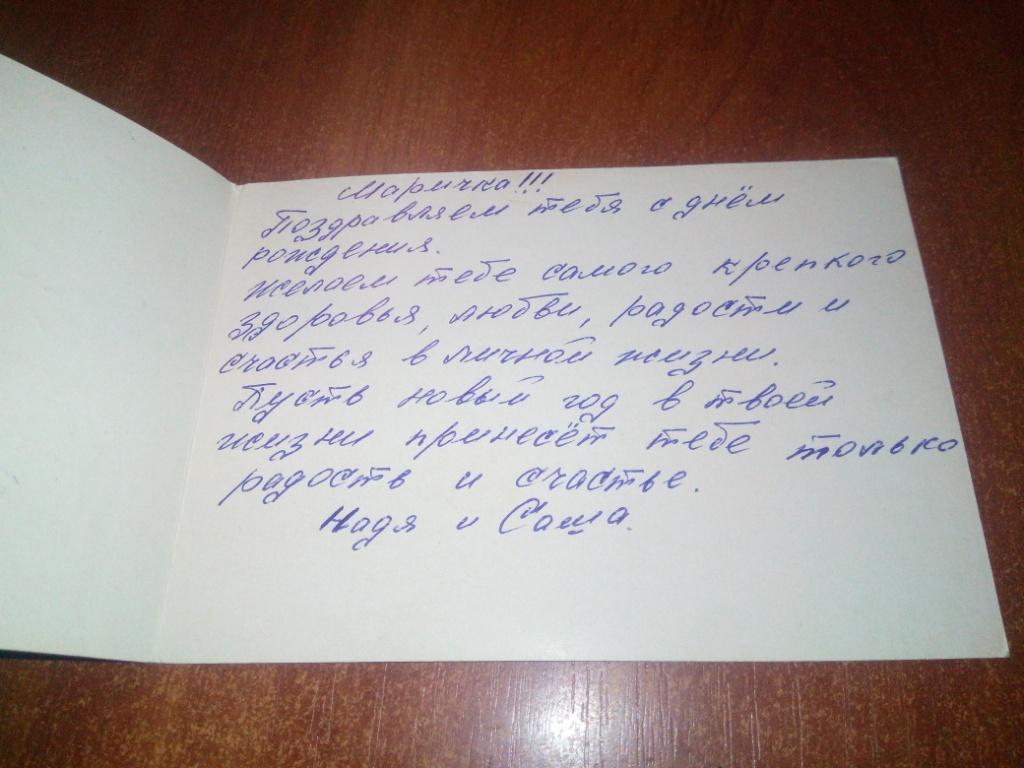 Маричка!!!
Поздравляем тебя с днём
рождения.
Желаем тебе самого крепкого
здоровья, любви, радости и
счастья в личной жизни.
Пусть новый год в твоей
жизни принесёт тебе только
радость и счастье.
Надя и Саша.